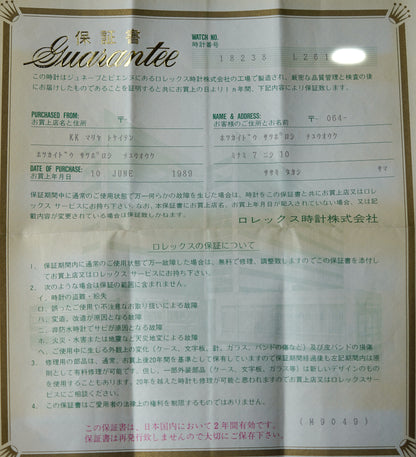 保証書
Guarantee
WATCH NO.
時計番号
18238 L261
この時計はジュネーブとビエンヌにあるロレックス時計株式会社の工場で製造され、厳密な品質管理と検査の後
にお届けしたものであることを証明すると共にお買上の日より1ヵ年間、下記内容により保証致します。
PURCHASED FROM: 〒-
お買上店名と住所
KK マリヤ トケイテン
ホツカイドウ サツポロシ チユウオウク
NAME & ADDRESS: 〒 064-
お客様のご住所とお名前
ホツカイドウ サツポロシ チユウオウク
ミナミ 7 ニシ 10
DATE OF PURCHASE:
お買上年月日
10 JUNE 1989
ササキ タカシ サマ
保証期間中に通常のご使用状態で万一何らかの故障を生じた場合は、時計をこの保証書と共にお買上店又はロレ
ックス サービスにお持ち下さい。なお、本保証書にお買上店名、お買上年月日が記入されていない場合、又は記
載内容が変更されている場合は保証致しかねます。
ロレックス時計株式会社
ロレックスの保証について
1. 保証期間内に通常のご使用状態で万一故障した場合は、無料で修理、調整致しますのでこの保証書を添付し
てお買上店又はロレックス サービスにお持ち下さい。
2. 次のような場合は保証の範囲に含まれません。
イ. 時計の盗難・紛失
ロ. 誤ったご使用や不注意なお取り扱いによる故障
ハ. 変造、改造が原因となる故障
ニ. 非防水時計でサビが原因となる故障
ホ. 火災・水害または地震など天災地変による故障
ヘ. ご使用中に生じる外観上の変化(ケース、文字板、針、ガラス、バンドの傷など)及び皮バンドの損傷
3. 修理用の部品は、通常、お買上後20年間を基準として保有していますので保証期間経過後も左記期間内は原
則として有料修理が可能です。但し、一部外装部品(ケース、文字板、ガラス等)は新しいデザインのもの
を使用することもあります。20年を越えた時計も修理が可能と思われますのでお買上店又はロレックスサー
ビスにご相談ください。
4. この保証書はご愛用者の法律上の権利を制限するものではありません。
この保証書は、日本国内において2年間有効です。
保証書は再発行致しませんので大切にご保存下さい。
(M9049)